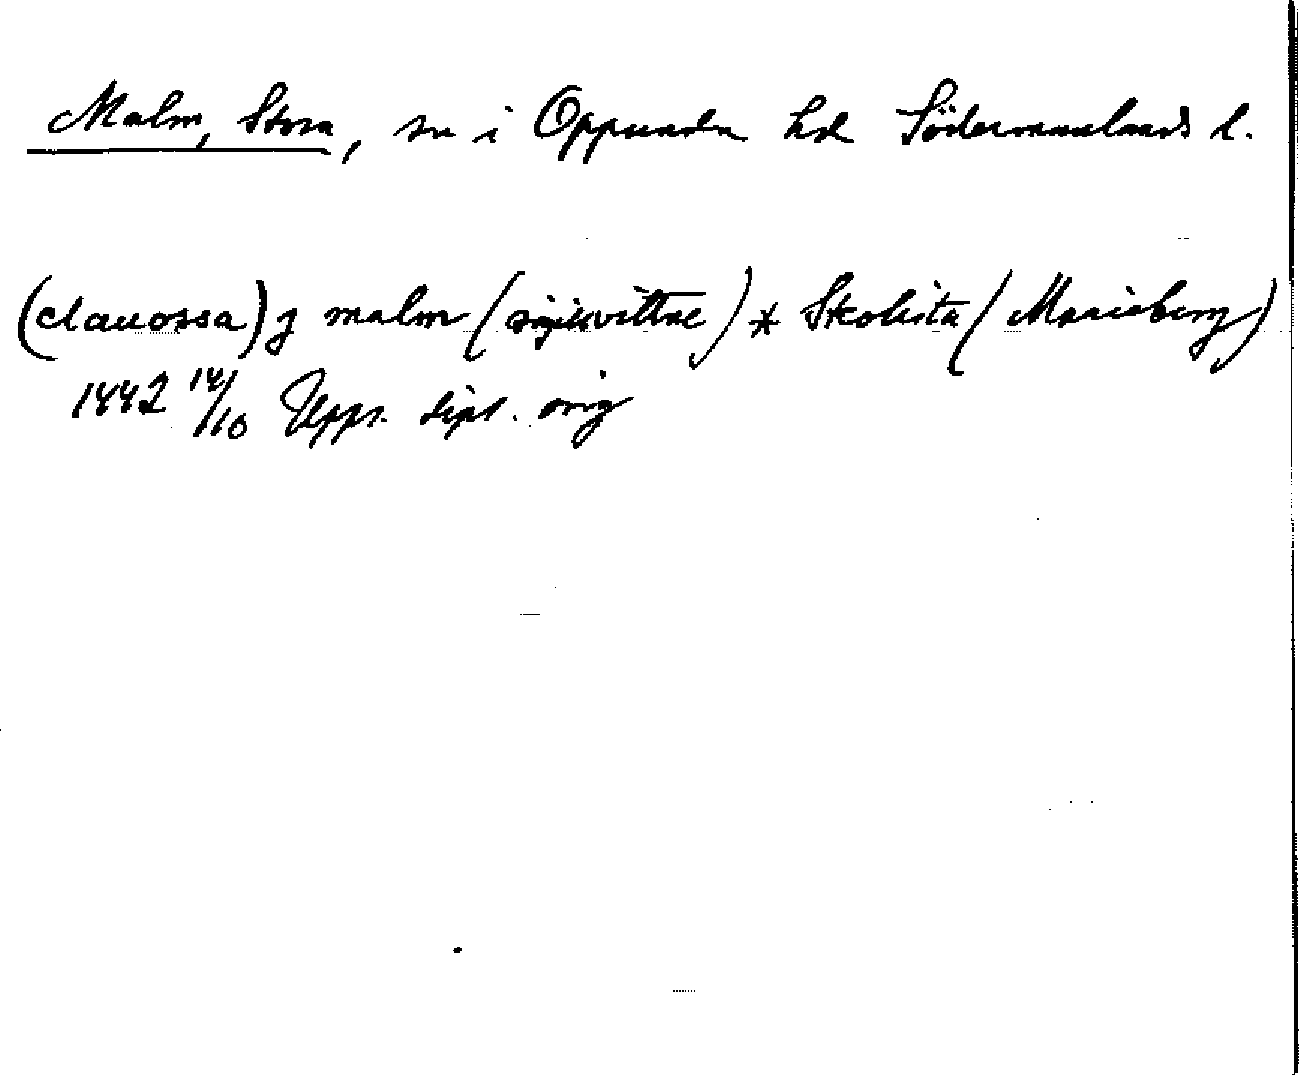 Malm, Stora, sn i Oppunda hd Södermanlands l.
(clauossa) j malm ( ) * Skolista (Marieberg)
1442 14/10 Upps. dipl. orig